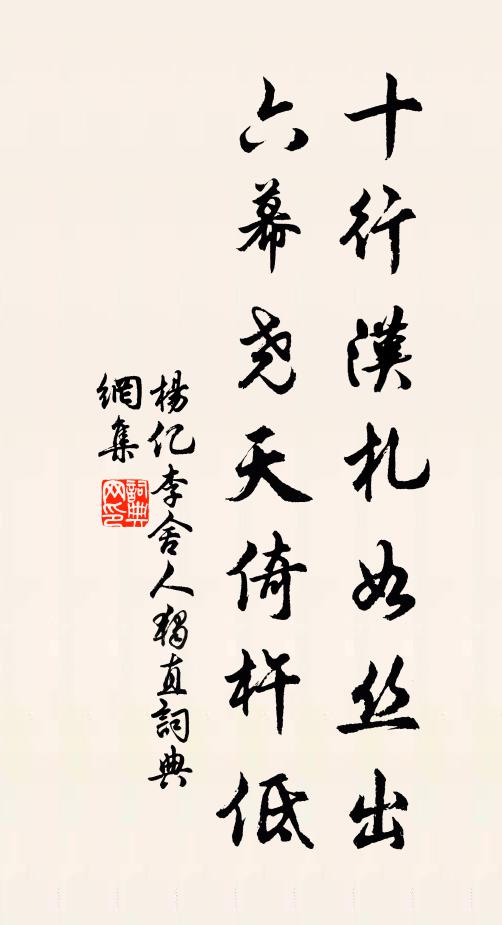 十行漢札如丝出
六幕尧天倚杵低
楊亿李舍人獨直詞典
網集
詞典网印